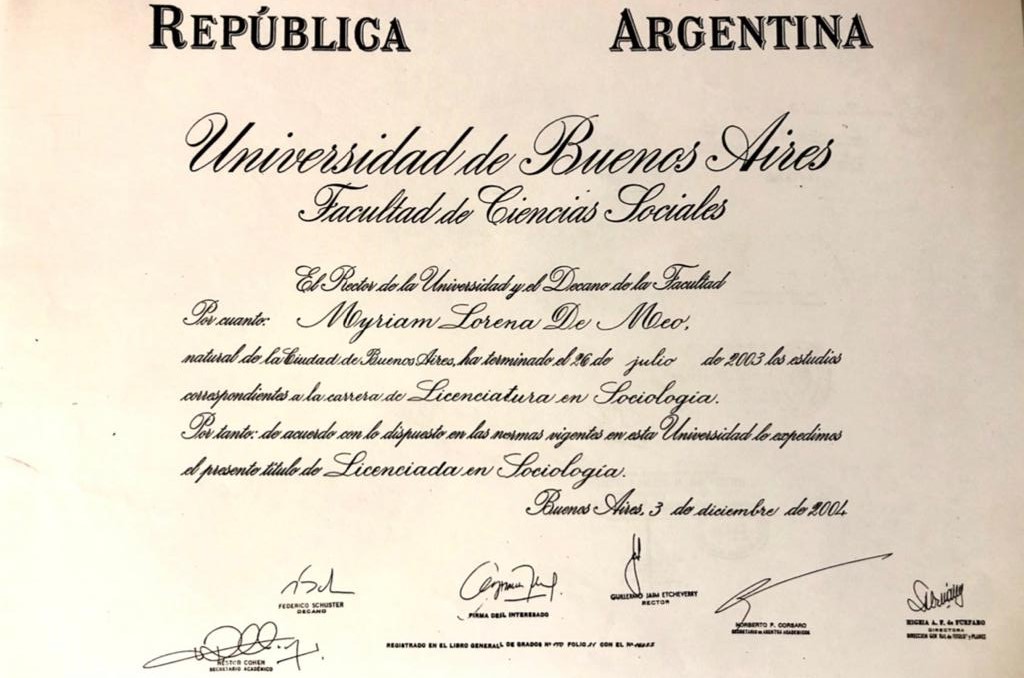 REPÚBLICA ARGENTINA
Universidad de Buenos Aires
Facultad de Ciencias Sociales
El Rector de la Universidad y el Decano de la Facultad
Por cuanto: Myriam Lorena De Meo,
natural de la Ciudad de Buenos Aires, ha terminado el 26 de julio de 2003 los estudios
correspondientes a la carrera de Licenciatura en Sociología.
Por tanto: de acuerdo con lo dispuesto en las normas vigentes en esta Universidad lo expedimos
el presente título de Licenciada en Sociología.
Buenos Aires, 3 de diciembre de 2004
FEDERICO SCHUSTER
DECANO
FIRMA DEL INTERESADO
GUILLERMO JAIM ETCHEVERRY
RECTOR
NORBERTO P. CORSARO
SECRETARIO DE ASUNTOS ACADEMICOS
HIGHIA A. F. de FURFARO
DIRECTORA
NESTOR COHEN
SECRETARIO ACADÉMICO
REGISTRADO EN EL LIBRO GENERAL DE GRADOS Nº FOLIO CON EL Nº